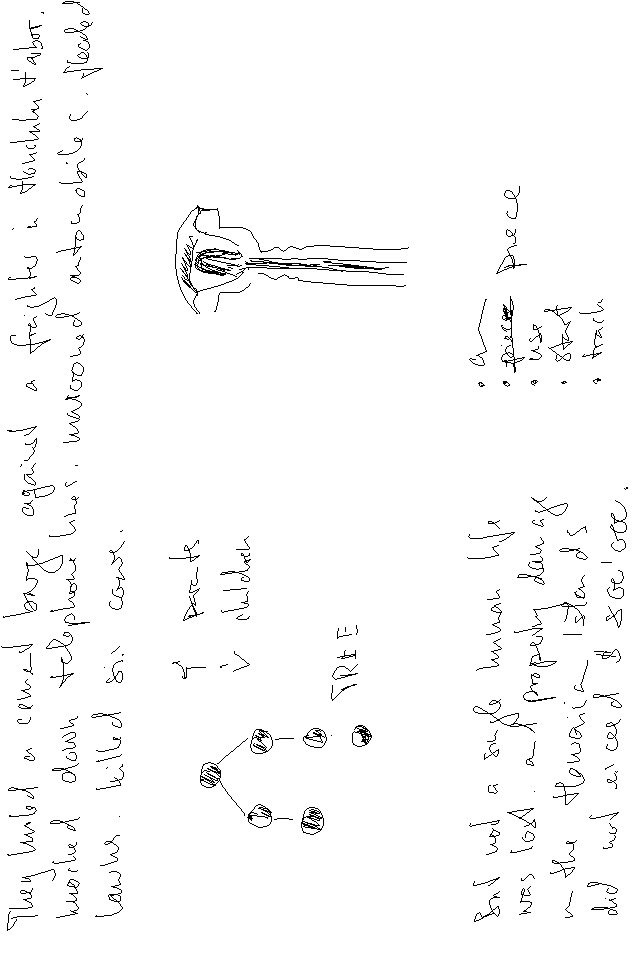 They hurled a cement barge against a freighter in Honolulu Harbor.
knocked down telephone lines. marooned automobiles. flooded
lawns. killed six cows.
parents
children
TREE
But not a single human life
was lost. and property damage
in the Hawaiian Islands
did not exceed $ 800'000.
• a
• piece piece
• use
• start
• track